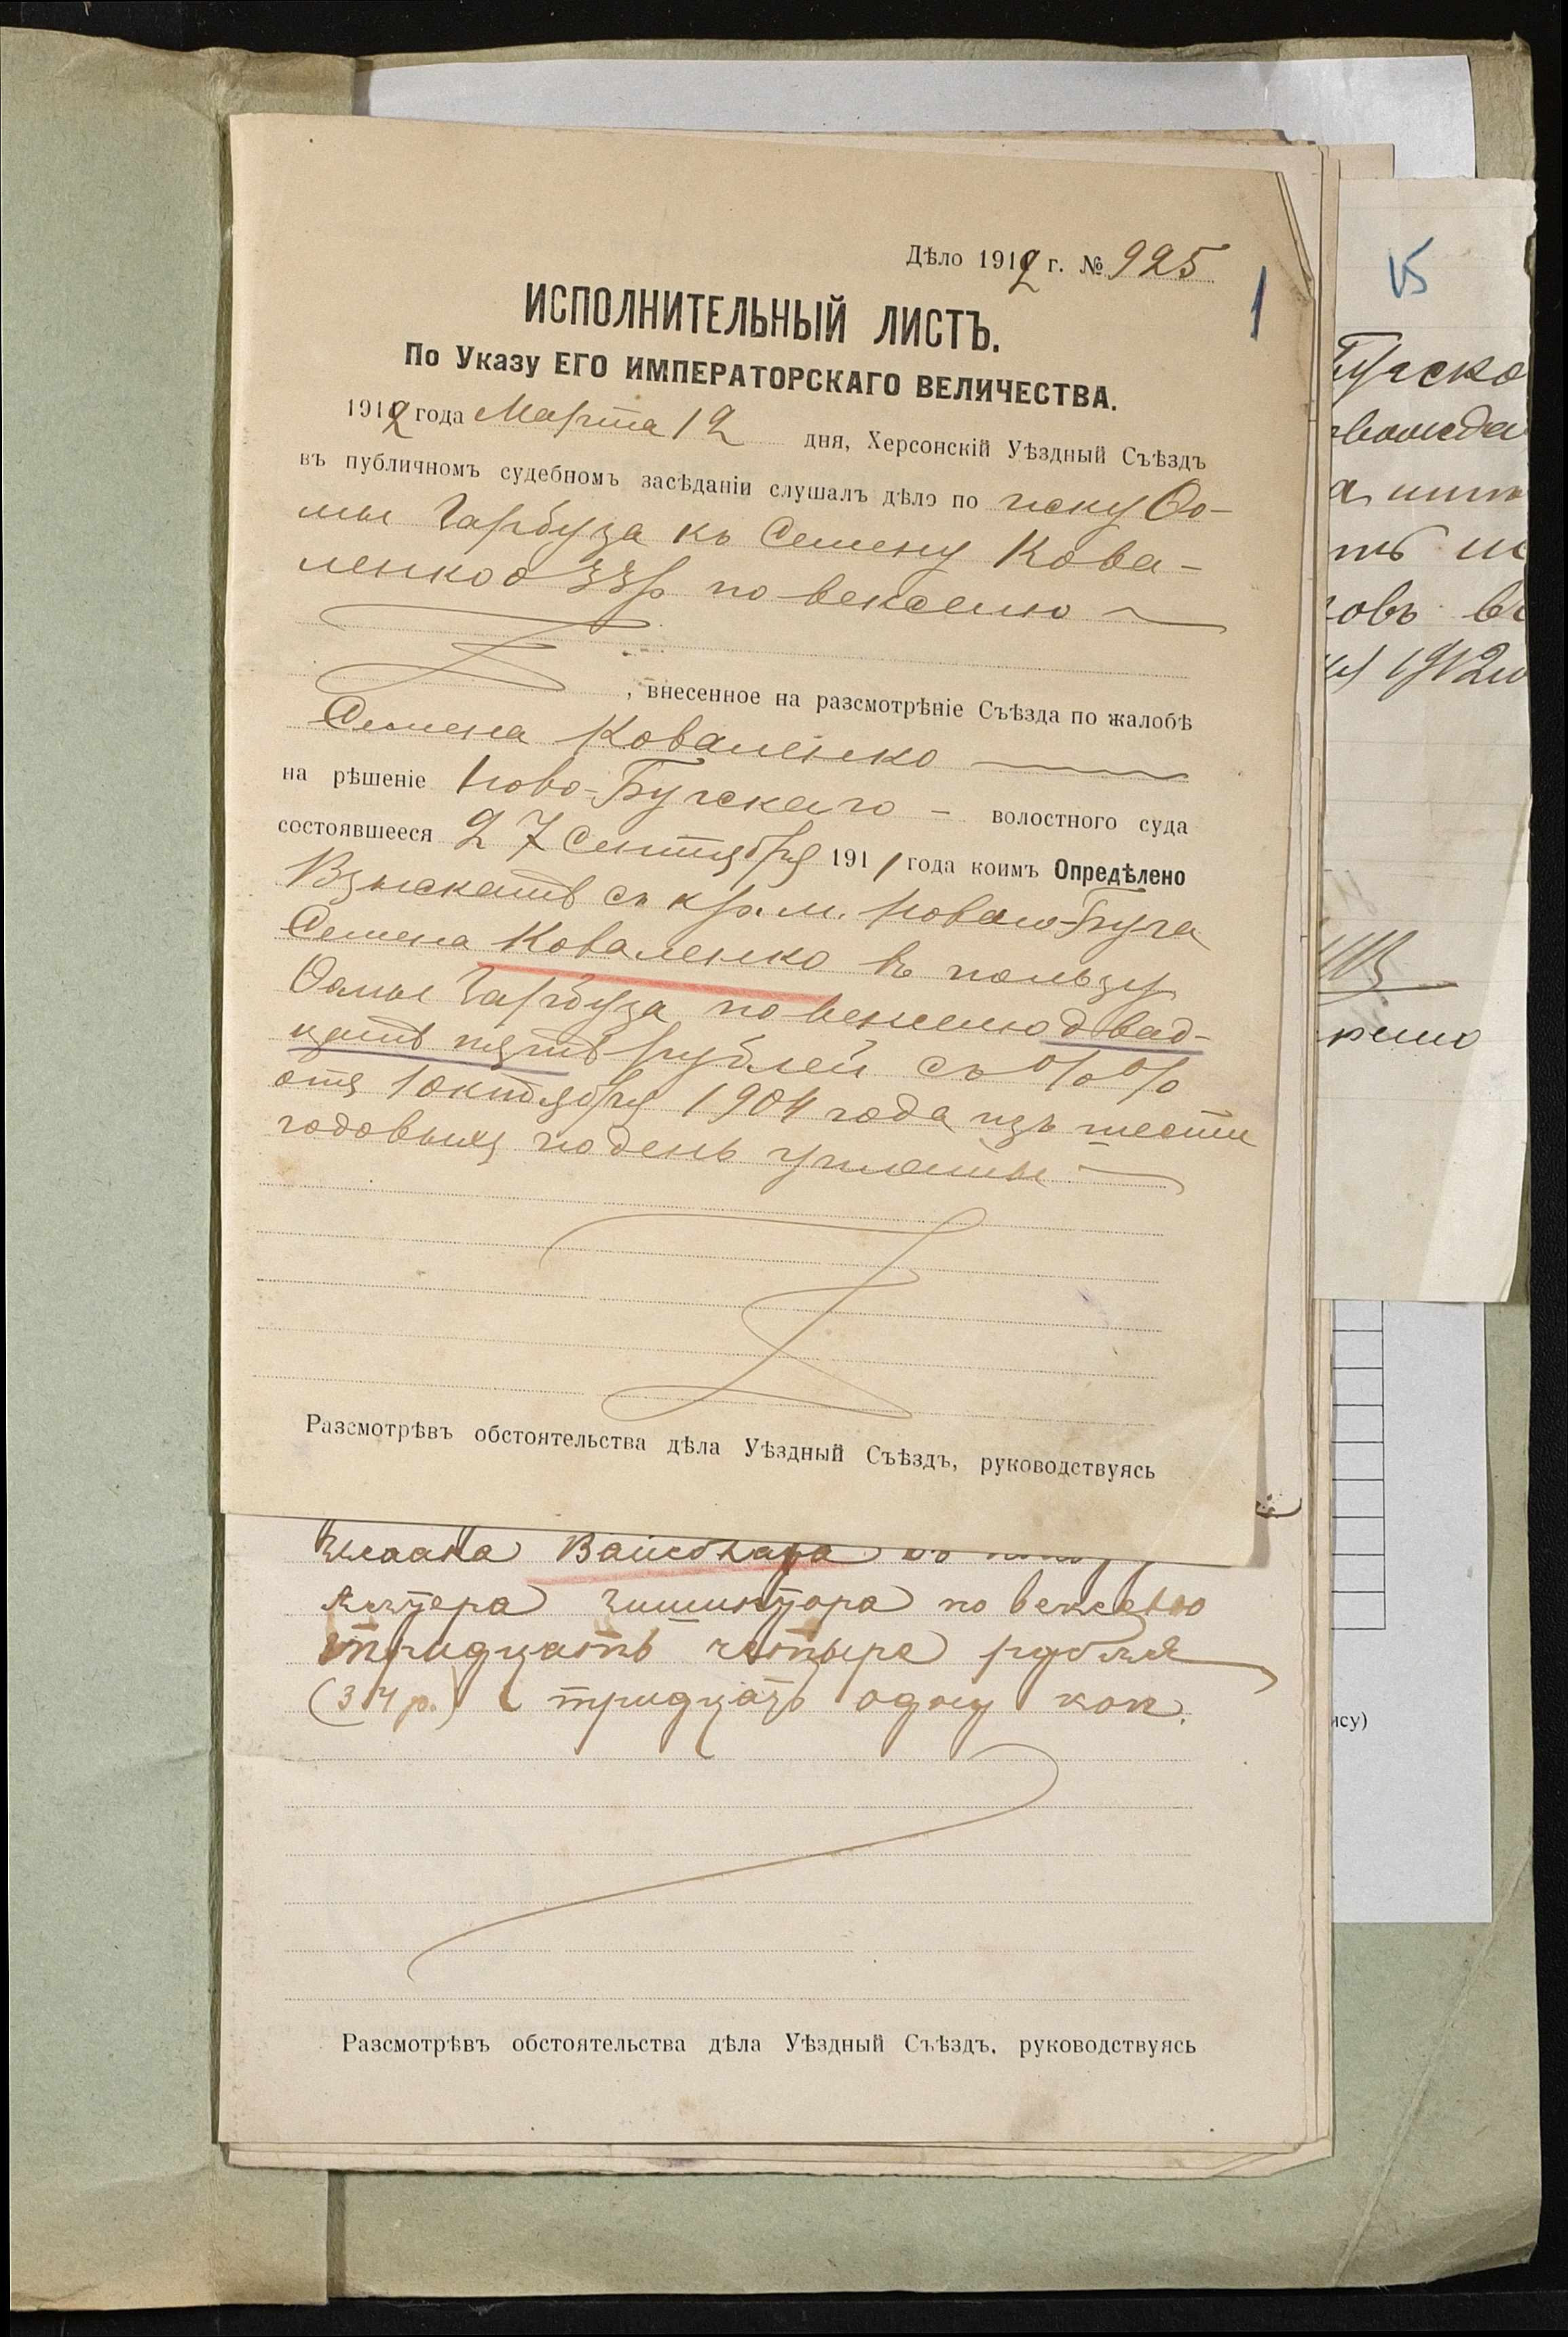 Дѣло 1912 г. № 925
1
ИСПОЛНИТЕЛЬНЫЙ ЛИСТЪ.
По Указу ЕГО ИМПЕРАТОРСКАГО ВЕЛИЧЕСТВА.
1912 года Марта 12 дня, Херсонскій Уѣздный Съѣздъ
въ публичномъ судебномъ засѣданіи слушалъ дѣло по иску Ѳо-
мы Гарбуза къ Семену Кова-
ленко о 33р по векселю
, внесенное на разсмотрѣніе Съѣзда по жалобѣ
Семена Коваленко
на рѣшеніе Ново-Бугскаго - волостного суда
состоявшееся 27 Сентября 1911 года коимъ Опредѣлено
Взыскать съ кр. м. Новаго-Буга
Семена Коваленко въ пользу
Ѳомы Гарбуза по векселю двад-
цать пять рублей съ %%
отъ 1 октября 1904 года изъ шести
годовыхъ по день уплаты
Разсмотрѣвъ обстоятельства дѣла Уѣздный Съѣздъ, руководствуясь
по векселю
тридцать четыре рубля
(34 р.) тридцать одну коп.
Разсмотрѣвъ обстоятельства дѣла Уѣздный Съѣздъ, руководствуясь
15
1912
ису)